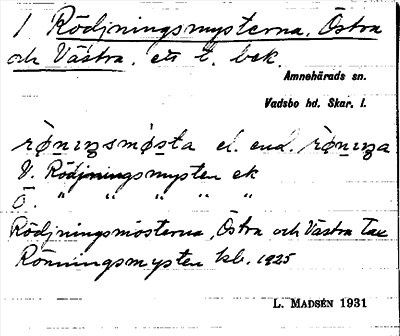 1 Rödjningsmysterna, Östra
och Västra, ett t. bek.
Amnehärads sn.
Vadsbo hd. Skar. l.
rø̀niŋsmø̀sta el. end. rø̀niŋa.
V. Rödjningsmysten ek
Ö. " " " " "
Rödjningsmosterna, Östra och Västra Tax
Rönningsmysten kbl. 1925
L. MADSÉN 1931